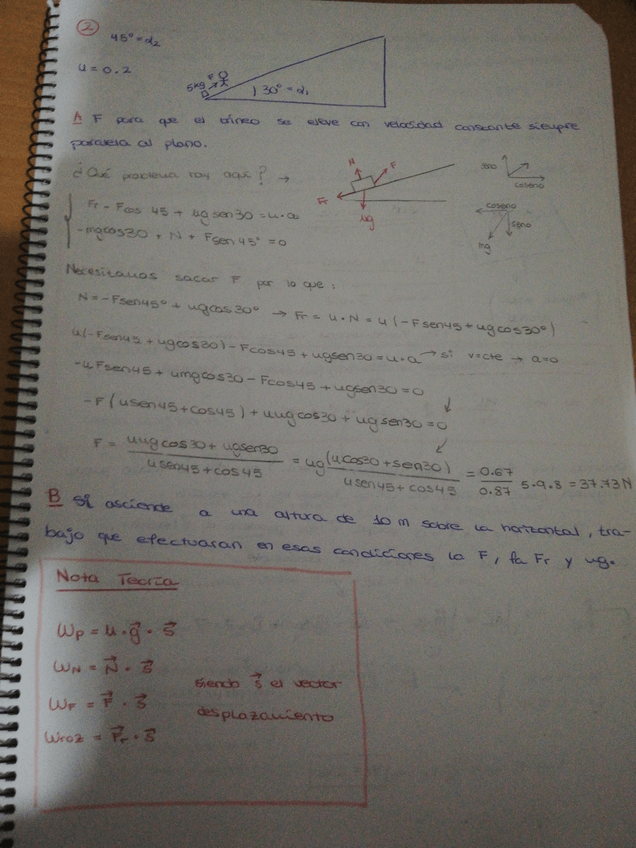 2
45° = α₂
u = 0.2
F
5kg
30° = α₁
A F para que el trineo se eleve con velocidad constante siempre
paralela al plano.
¿Qué problema hay aquí? →
N
F
Fr
ug
seno
coseno
coseno
seno
mg
Fr - Fcos 45 + ug sen30 = u·a
-mgcos30 + N + Fsen 45° = 0
Necesitamos sacar F por lo que:
N = -Fsen45° + ugcos30° → Fr = u·N = u(-Fsen45 + ugcos30°)
u(-Fsen45 + ugcos30) - Fcos45 + ugsen30 = u·a → si v=cte → a=0
-uFsen45 + umgcos30 - Fcos45 + ugsen30 = 0
-F(usen45 + cos45) + uugcos30 + ugsen30 = 0
F = (uugcos30 + ugsen30)/(usen45 + cos45) = ug (ucos30 + sen30)/(usen45 + cos45) = 0.67/0.87 5·9.8 = 37.73N
B Si asciende a una altura de 10 m sobre la horizontal, tra-
bajo que efectuaran en esas condiciones la F, la Fr y ug.
Nota Teoría
Wp = u·g⃗·s⃗
WN = N⃗·s⃗
siendo s⃗ el vector
WF = F⃗·s⃗
desplazamiento
Wroz = F⃗r·s⃗